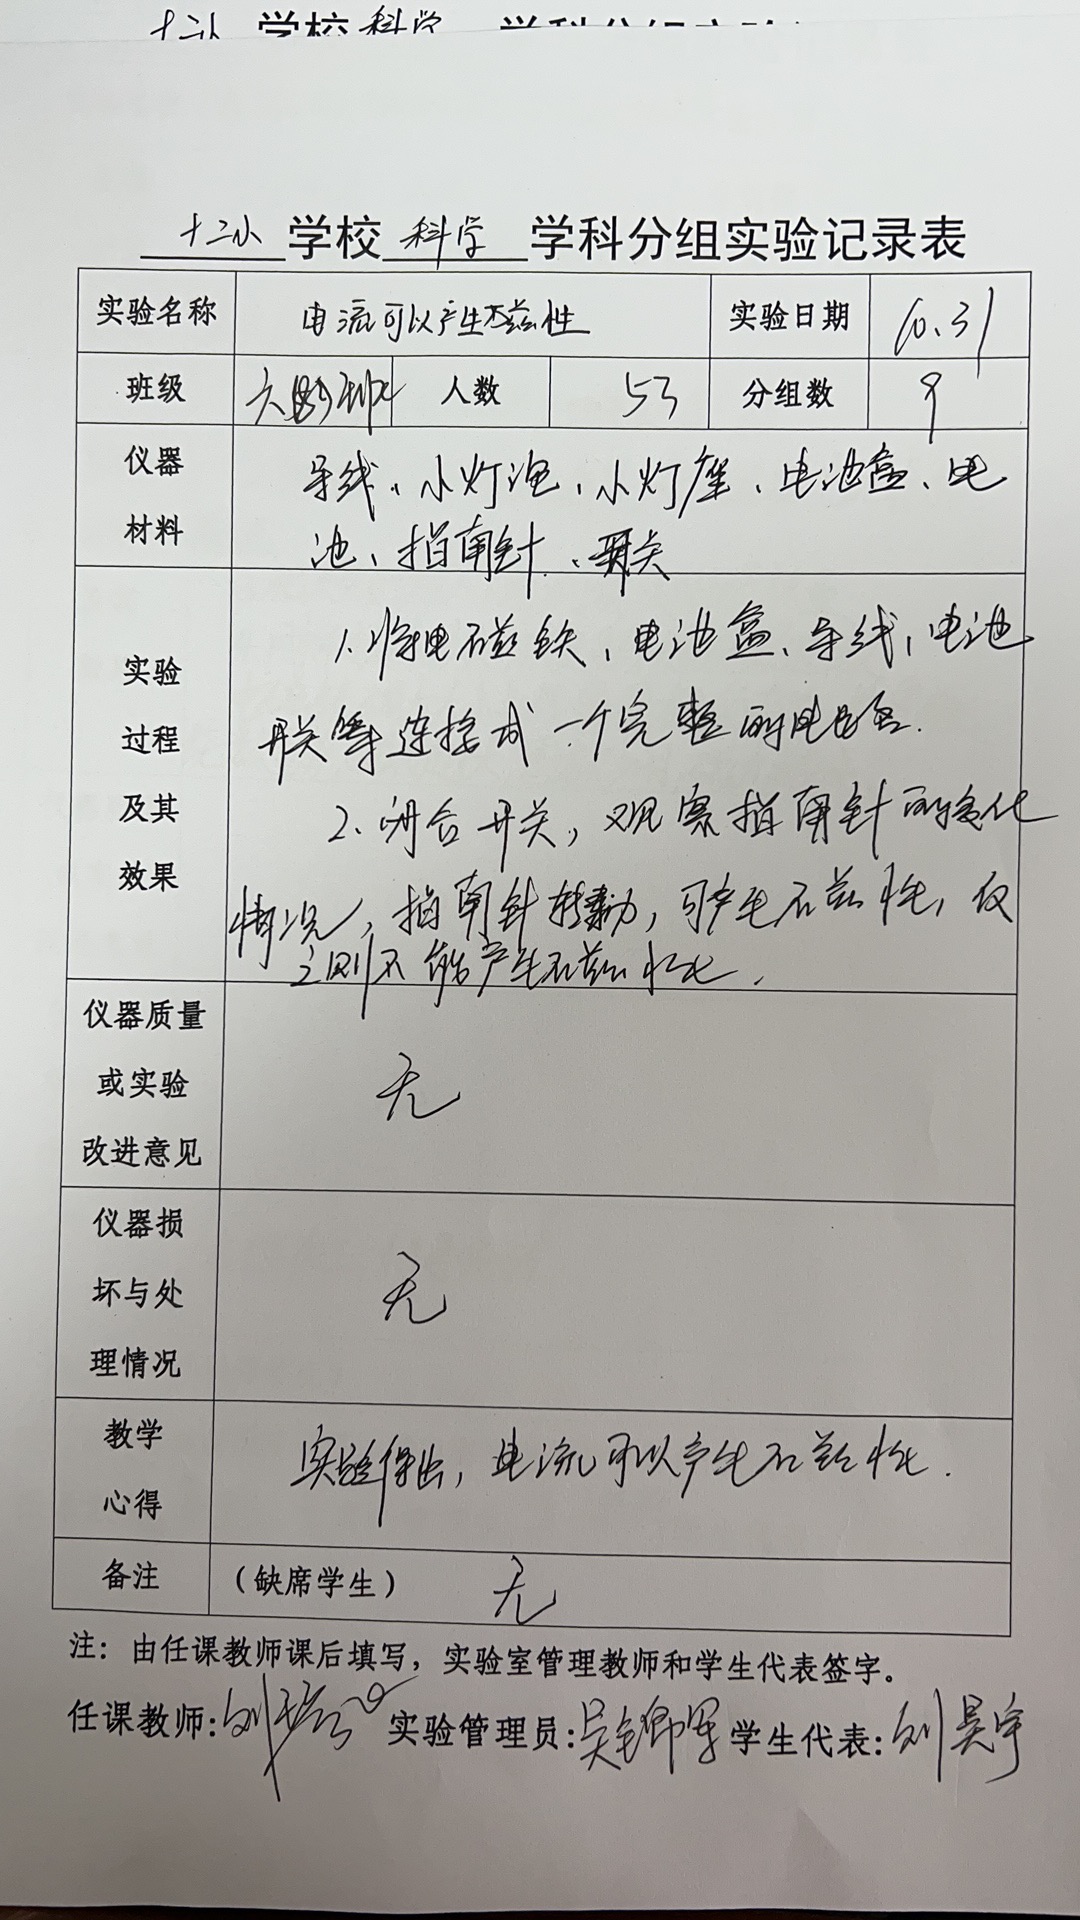 十二小 学校 科学 学科分组实验记录表
实验名称 电流可以产生磁性 实验日期 10.31
班级 六 人数 53 分组数 9
仪器
材料
导线、小灯泡、小灯座、电池盒、电
池、指南针、开关
实验
过程
及其
效果
1.将电磁铁、电池盒、导线、电池
开关等连接成一个完整的电路.
2.闭合开关,观察指南针的变化
情况,指南针转动,可产生磁性,反
之则不能产生磁性.
仪器质量
或实验
改进意见
无
仪器损
坏与处
理情况
无
教学
心得
实验得出,电流可以产生磁性.
备注 (缺席学生) 无
注：由任课教师课后填写，实验室管理教师和学生代表签字。
任课教师: 刘 实验管理员: 吴 学生代表: 刘昊宇